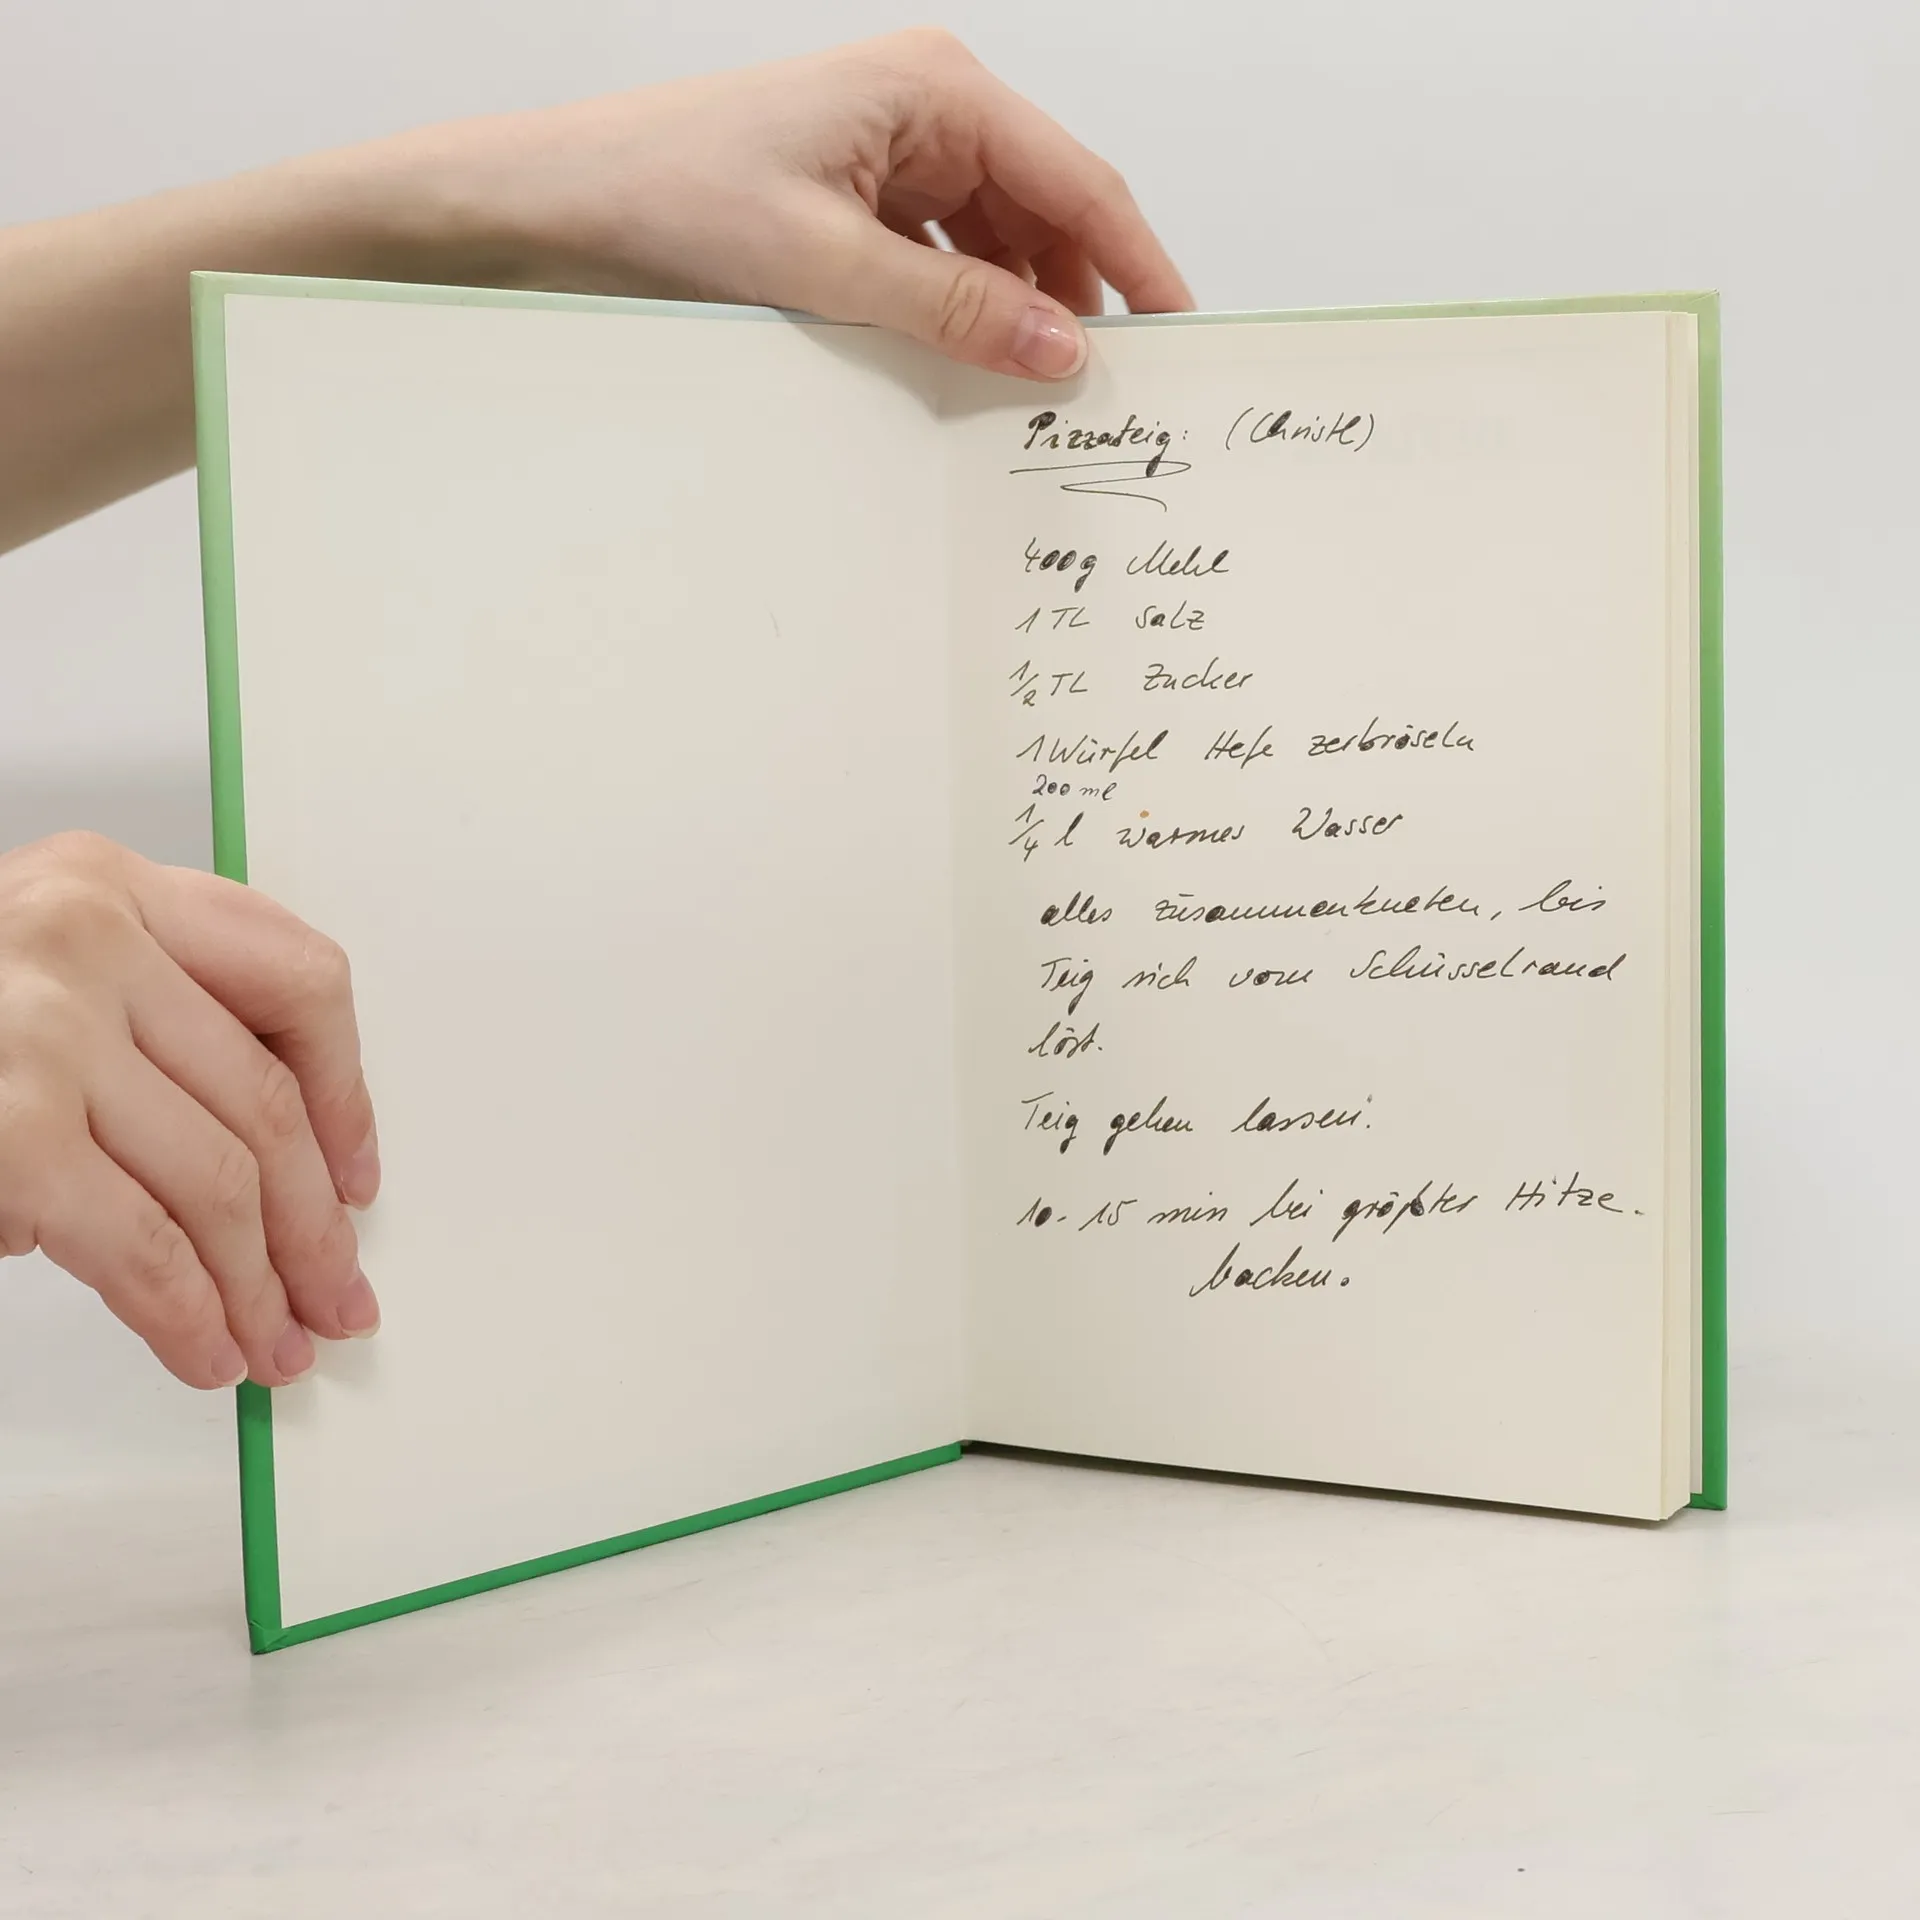 Pizzateig: (Christl)
400g Mehl
1 TL Salz
1/2 TL Zucker
1 Würfel Hefe zerbröseln
200 ml
1/4 l warmes Wasser
alles zusammenkneten, bis
Teig sich vom Schüsselrand
löst.
Teig gehen lassen.
10-15 min bei größter Hitze.
backen.